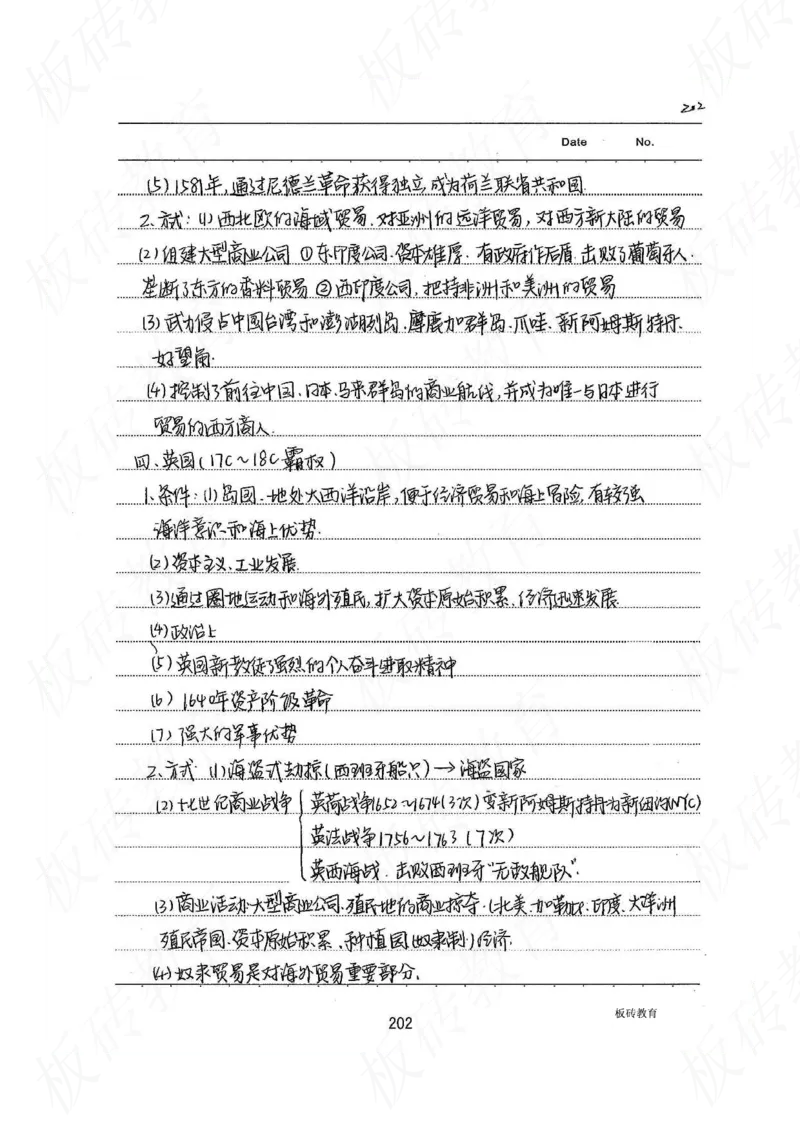 202
Date No.
(5) 1581年,通过尼德兰革命获得独立,成为荷兰联省共和国.
2、方式:(1)西北欧的海域贸易.对亚洲的远洋贸易,对西方新大陆的贸易
(2)组建大型商业公司 ①东印度公司.资本雄厚.有政府作后盾.击败了葡萄牙人.
垄断了东方的香料贸易 ②西印度公司.把持非洲和美洲的贸易
(3)武力侵占中国台湾和澎湖列岛.摩鹿加群岛.爪哇.新阿姆斯特丹.
好望角.
(4)控制了前往中国、日本.马来群岛的商业航线,并成为唯一与日本进行
贸易的西方商人.
四、英国(17C~18C霸权)
1、条件:(1)岛国.地处大西洋沿岸,便于经济贸易和海上冒险.有较强
海洋意识和海上优势.
(2)资本主义、工业发展.
(3)通过圈地运动和海外殖民,扩大资本原始积累.经济迅速发展.
(4)政治上
(5)英国新教徒强烈的个人奋斗进取精神
(6) 1640年资产阶级革命
(7) 强大的军事优势
2、方式 (1)海盗式劫掠(西班牙船只)→海盗国家
(2)十七世纪商业战争 英荷战争1652~1674(3次)变新阿姆斯特丹为新纽约(NYC)
英法战争1756~1763(7次)
英西海战.击败西班牙"无敌舰队".
(3)商业活动.大型商业公司.殖民地的商业掠夺.(北美.加勒比.印度.大洋洲
殖民帝国.资本原始积累、种植园(奴隶制)经济.
(4)奴隶贸易是对海外贸易重要部分.
202
板砖教育